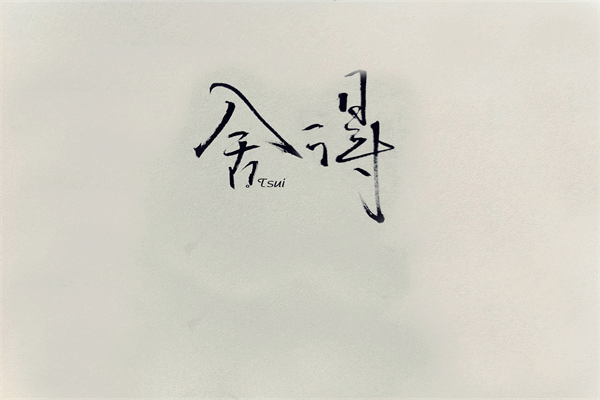 舍得
。Tsui